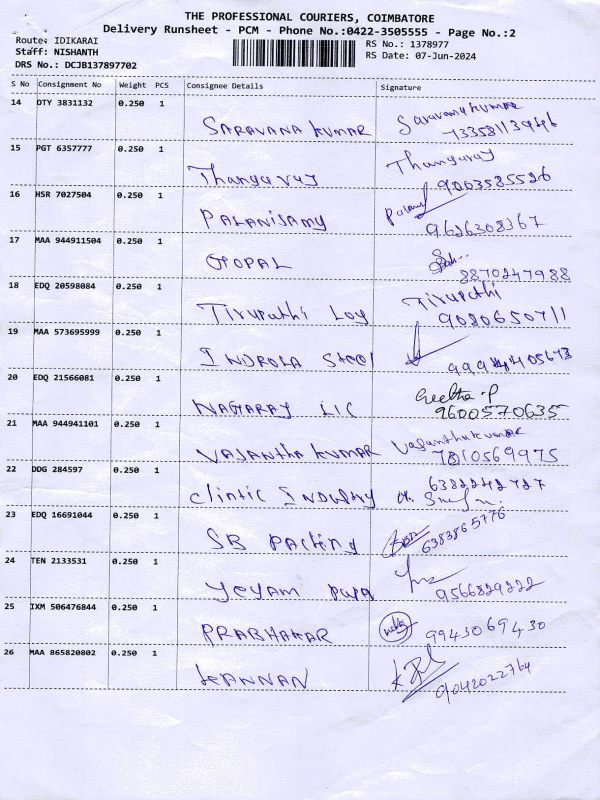 THE PROFESSIONAL COURIERS, COIMBATORE
Delivery Runsheet - PCM - Phone No.:0422-3505555 - Page No.:2
Route: IDIKARAI
Staff: NISHANTH
DRS No.: DCJB137897702
RS No.: 1378977
RS Date: 07-Jun-2024
S No Consignment No Weight PCS Consignee Details Signature
14 DTY 3831132 0.250 1 SARAVANA KUMAR Saravana kumar
15 PGT 6357777 0.250 1 Thangaraj Thangaraj
9063585526
16 HSR 7027504 0.250 1 PALANISAMY
9626308367
17 MAA 944911504 0.250 1 GOPAL
8870247988
18 EDQ 20598084 0.250 1 Tirupathi Loy Tirupathi
9080650711
19 MAA 573695999 0.250 1 INDROLA Steel
20 EDQ 21566081 0.250 1 NAGARAJ LIC Geetha.P
9600570635
21 MAA 944941101 0.250 1 VASANTHA KUMAR Vasantha kumar
7010569975
22 DDG 284597 0.250 1 6382242727
23 EDQ 16691044 0.250 1 SB Packing
6383865776
24 TEN 2133531 0.250 1
9566829222
25 IXM 506476844 0.250 1 PRABHAKAR 9943069430
26 MAA 865820802 0.250 1 KANNAN
9042022764